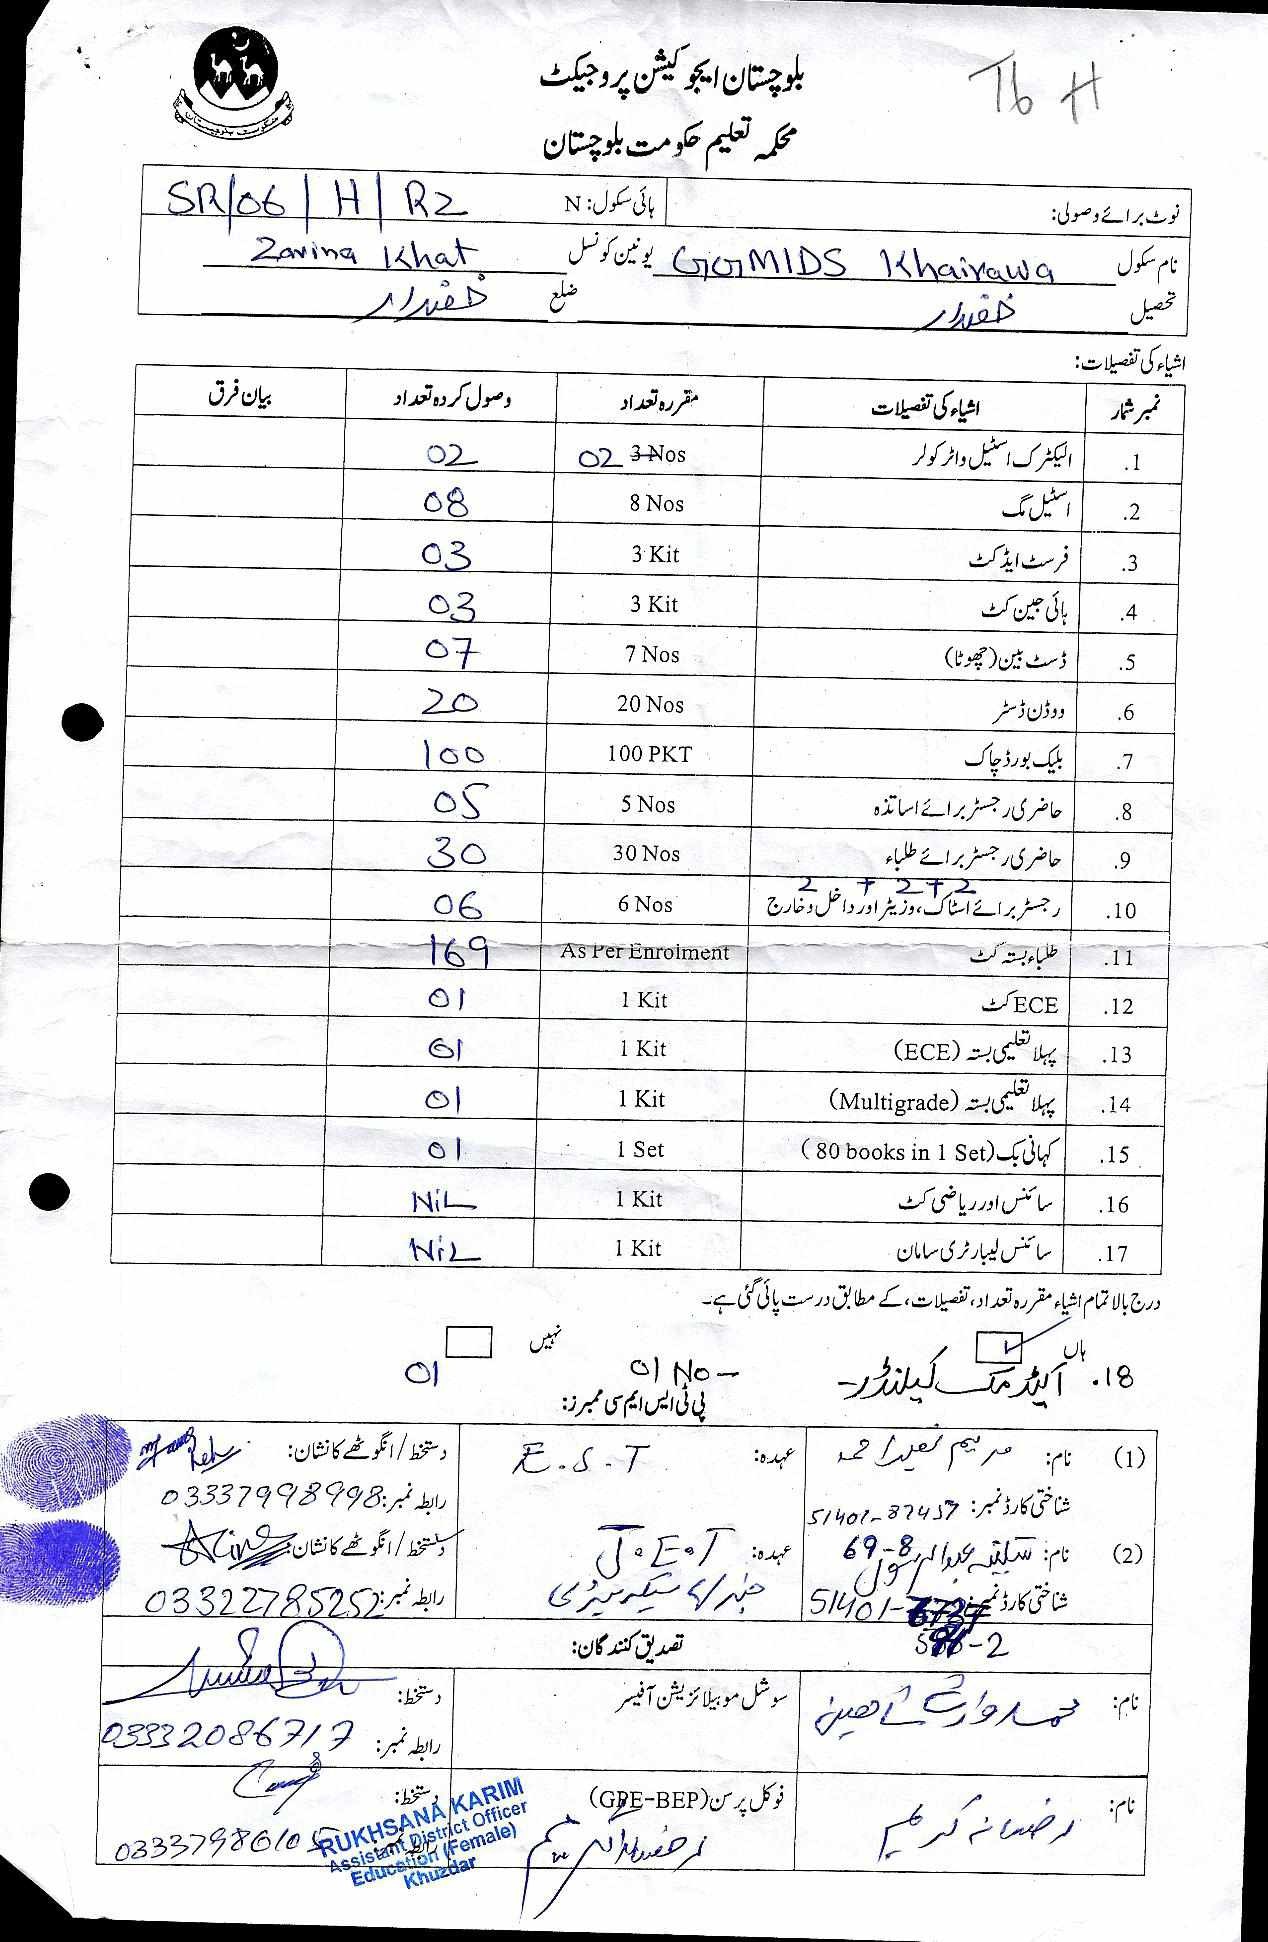 بلوچستان ایجوکیشن پروجیکٹ
محکمہ تعلیم حکومت بلوچستان
نوٹ برائے وصولی: ہائی سکول: N SR/06/H/R2
نام سکول GGMIDS Khairawa یونین کونسل Zarina Khat
تحصیل خضدار ضلع خضدار
اشیاء کی تفصیلات:
نمبر شمار اشیاء کی تفصیلات مقررہ تعداد وصول کردہ تعداد بیان فرق
1. الیکٹرک اسٹیل واٹر کولر 3 Nos 02 02
2. اسٹیل مگ 8 Nos 08
3. فرسٹ ایڈ کٹ 3 Kit 03
4. ہائی جین کٹ 3 Kit 03
5. ڈسٹ بین (چھوٹا) 7 Nos 07
6. ووڈن ڈسٹر 20 Nos 20
7. بلیک بورڈ چاک 100 PKT 100
8. حاضری رجسٹر برائے اساتذہ 5 Nos 05
9. حاضری رجسٹر برائے طلباء 30 Nos 30
2 + 2 + 2
10. رجسٹر برائے اسٹاک، وزیٹر اور داخل و خارج 6 Nos 06
11. طلباء بستہ کٹ As Per Enrolment 169
12. ECE کٹ 1 Kit 01
13. پہلا تعلیمی بستہ (ECE) 1 Kit 01
14. پہلا تعلیمی بستہ (Multigrade) 1 Kit 01
15. کہانی بک (80 books in 1 Set) 1 Set 01
16. سائنس اور ریاضی کٹ 1 Kit NiL
17. سائنس لیبارٹری سامان 1 Kit NiL
درج بالا تمام اشیاء مقررہ تعداد، تفصیلات، کے مطابق درست پائی گئی ہے۔
ہاں نہیں
18. کیلنڈر 01 No 01
پی ٹی ایس ایم سی ممبرز:
(1) نام: مریم نصیر احمد عہدہ: E.S.T دستخط / انگوٹھے کا نشان:
شناختی کارڈ نمبر: 51401-87457 رابطہ نمبر: 03337998998
69-8
(2) نام: سکینہ عبدالرسول عہدہ: J.E.T دستخط / انگوٹھے کا نشان:
شناختی کارڈ نمبر: 51401- جنرل سیکریٹری رابطہ نمبر: 03322785252
تصدیق کنندگان:
نام: محمد وارث شاھین سوشل موبیلائزیشن آفیسر دستخط:
رابطہ نمبر: 03332086717
نام: رخسانہ کریم فوکل پرسن (GPE-BEP) دستخط:
رخسانہ کریم
RUKHSANA KARIM
Assistant District Officer
Education (Female)
Khuzdar